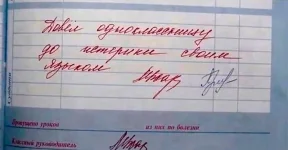 Довёл одноклассницу
до истерики своим
языком
Пропущено уроков из них по болезни
Классный руководитель